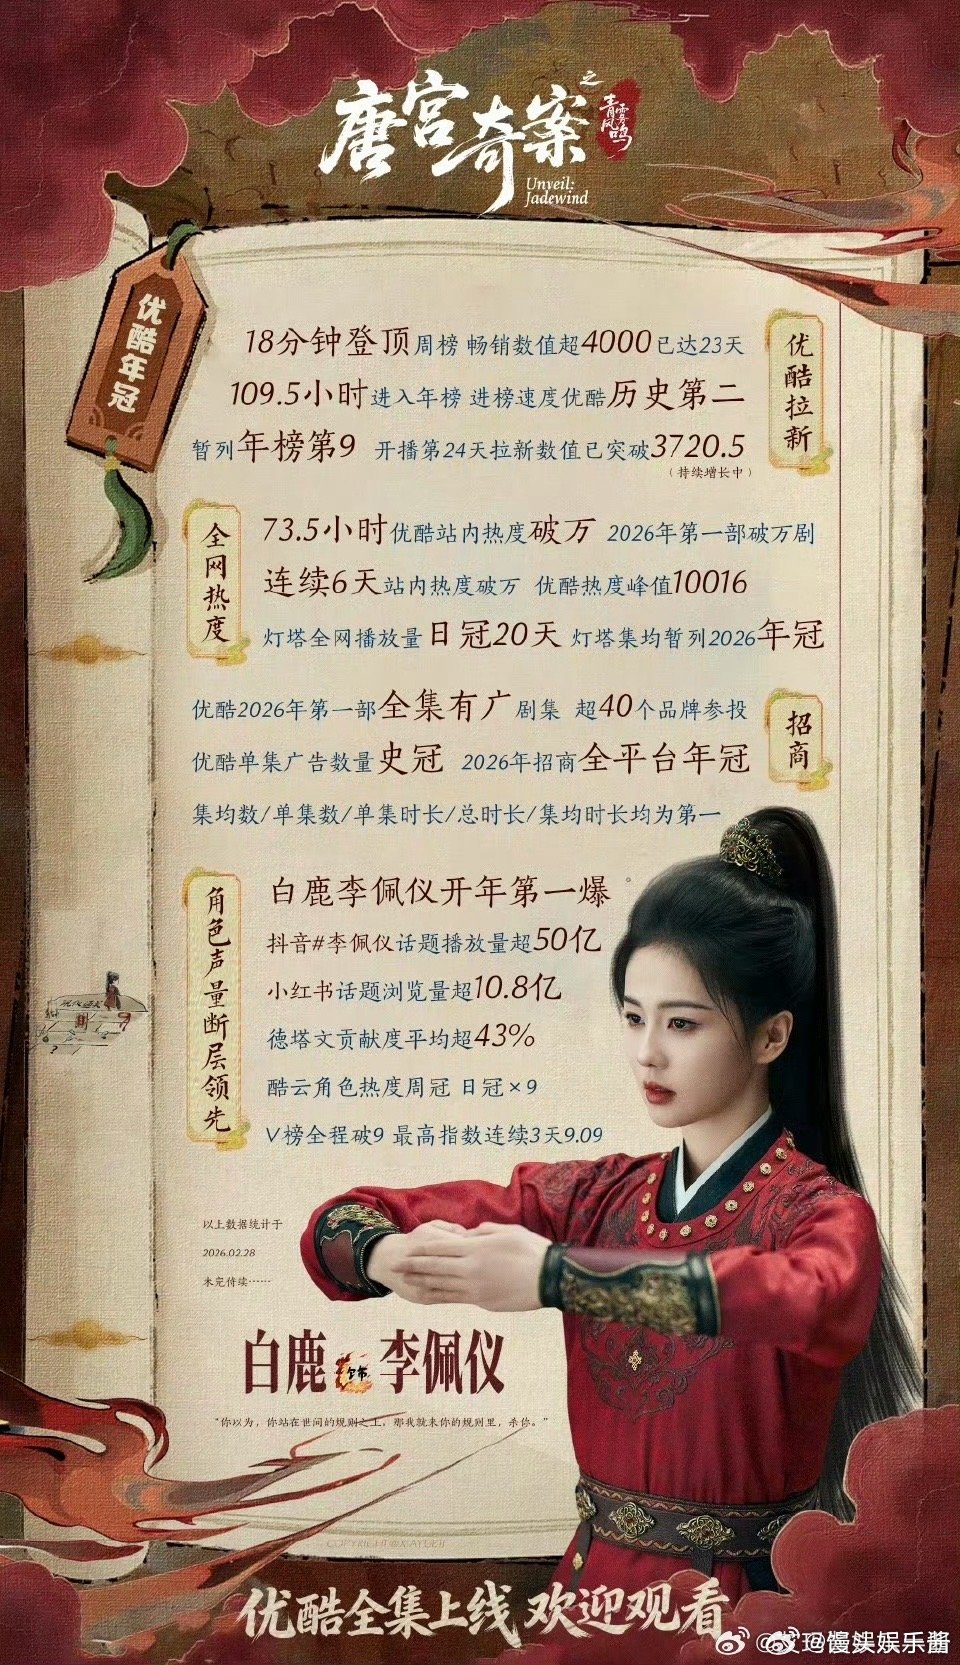 唐宫奇案之
青雾风鸣
Unveil:
Jadewind
优酷年冠
优酷拉新
18分钟登顶周榜 畅销数值超4000已达23天
109.5小时进入年榜 进榜速度优酷历史第二
暂列年榜第9 开播第24天拉新数值已突破3720.5
（持续增长中）
全网热度
73.5小时优酷站内热度破万 2026年第一部破万剧
连续6天站内热度破万 优酷热度峰值10016
灯塔全网播放量日冠20天 灯塔集均暂列2026年冠
招商
优酷2026年第一部全集有广剧集 超40个品牌参投
优酷单集广告数量史冠 2026年招商全平台年冠
集均数/单集数/单集时长/总时长/集均时长均为第一
角色声量断层领先
白鹿李佩仪开年第一爆
抖音#李佩仪话题播放量超50亿
小红书话题浏览量超10.8亿
德塔文贡献度平均超43%
酷云角色热度周冠 日冠×9
V榜全程破9 最高指数连续3天9.09
以上数据统计于
2026.02.28
未完待续……
白鹿 饰 李佩仪
“你以为，你站在世间的规则之上，那我就来你的规则里，杀你。”
优酷全集上线 欢迎观看
@馒头娱乐酱